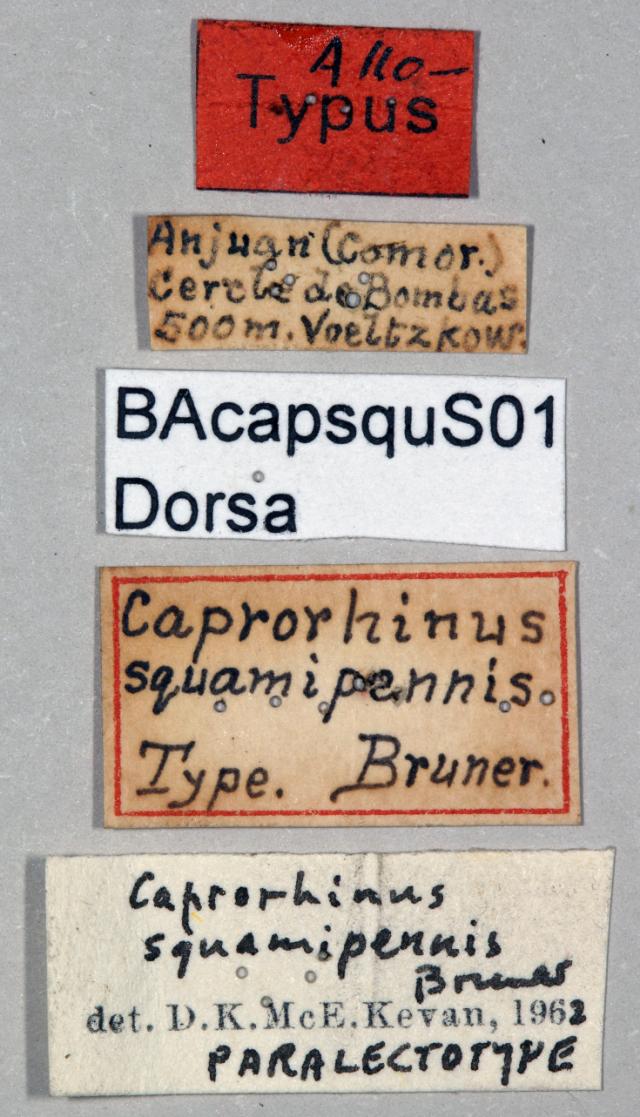 Allo-
Typus
Anjuan (Comor.)
Cercle de Bombas
500m. Voeltzkow.
BAcapsquS01
Dorsa
Caprorhinus
squamipennis.
Type. Bruner.
Caprorhinus
squamipennis
Bruner
det. D.K.McE.Kevan, 1962
PARALECTOTYPE